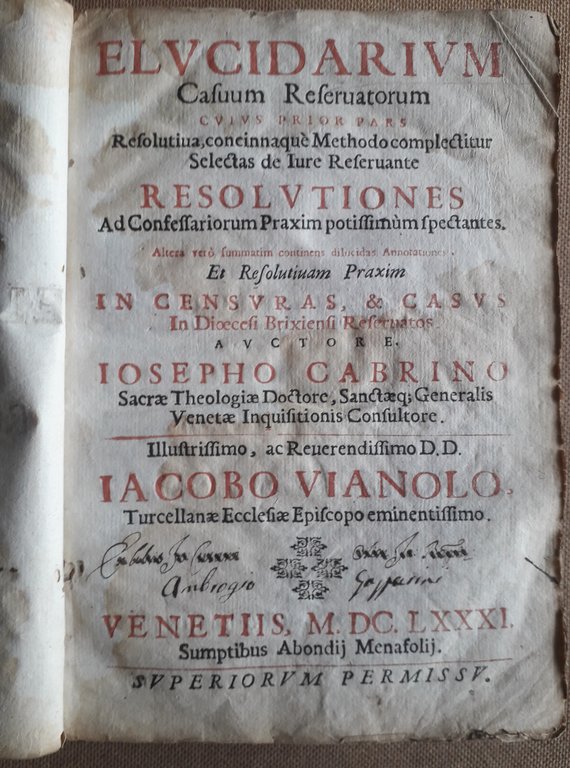 ELVCIDARIVM
Caſuum Reſeruatorum
CVIVS PRIOR PARS
Reſolutiua, concinnaquè Methodo complectitur
Selectas de Iure Reſeruante
RESOLVTIONES
Ad Confeſſariorum Praxim potiſſimùm ſpectantes.
Altera verò ſummatim continens dilucidas Annotationes.
Et Reſolutiuam Praxim
IN CENSVRAS, & CASVS
In Diœceſi Brixienſi Reſeruatos
AVCTORE.
IOSEPHO CABRINO
Sacræ Theologiæ Doctore, Sanctæq; Generalis
Venetæ Inquiſitionis Conſultore.
Illuſtriſſimo, ac Reuerendiſſimo D. D.
IACOBO VIANOLO,
Turcellanæ Eccleſiæ Epiſcopo eminentiſſimo.
Ambrogio Gaſparini
VENETIIS, M. DC. LXXXI.
Sumptibus Abondij Menafolij.
SVPERIORVM PERMISSV.